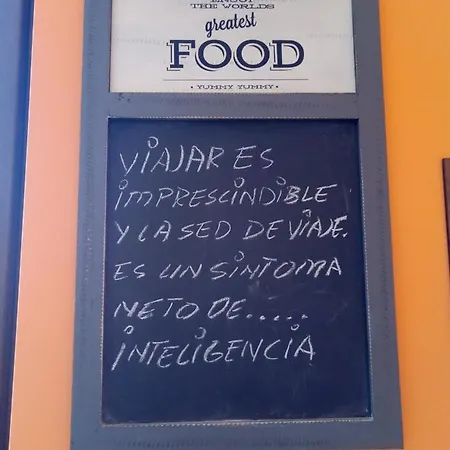 ENJOY
THE WORLDS
greatest
FOOD
· YUMMY YUMMY ·
VIAJAR ES
IMPRESCINDIBLE
Y LA SED DE VIAJE.
ES UN SINTOMA
NETO DE.....
INTELIGENCIA